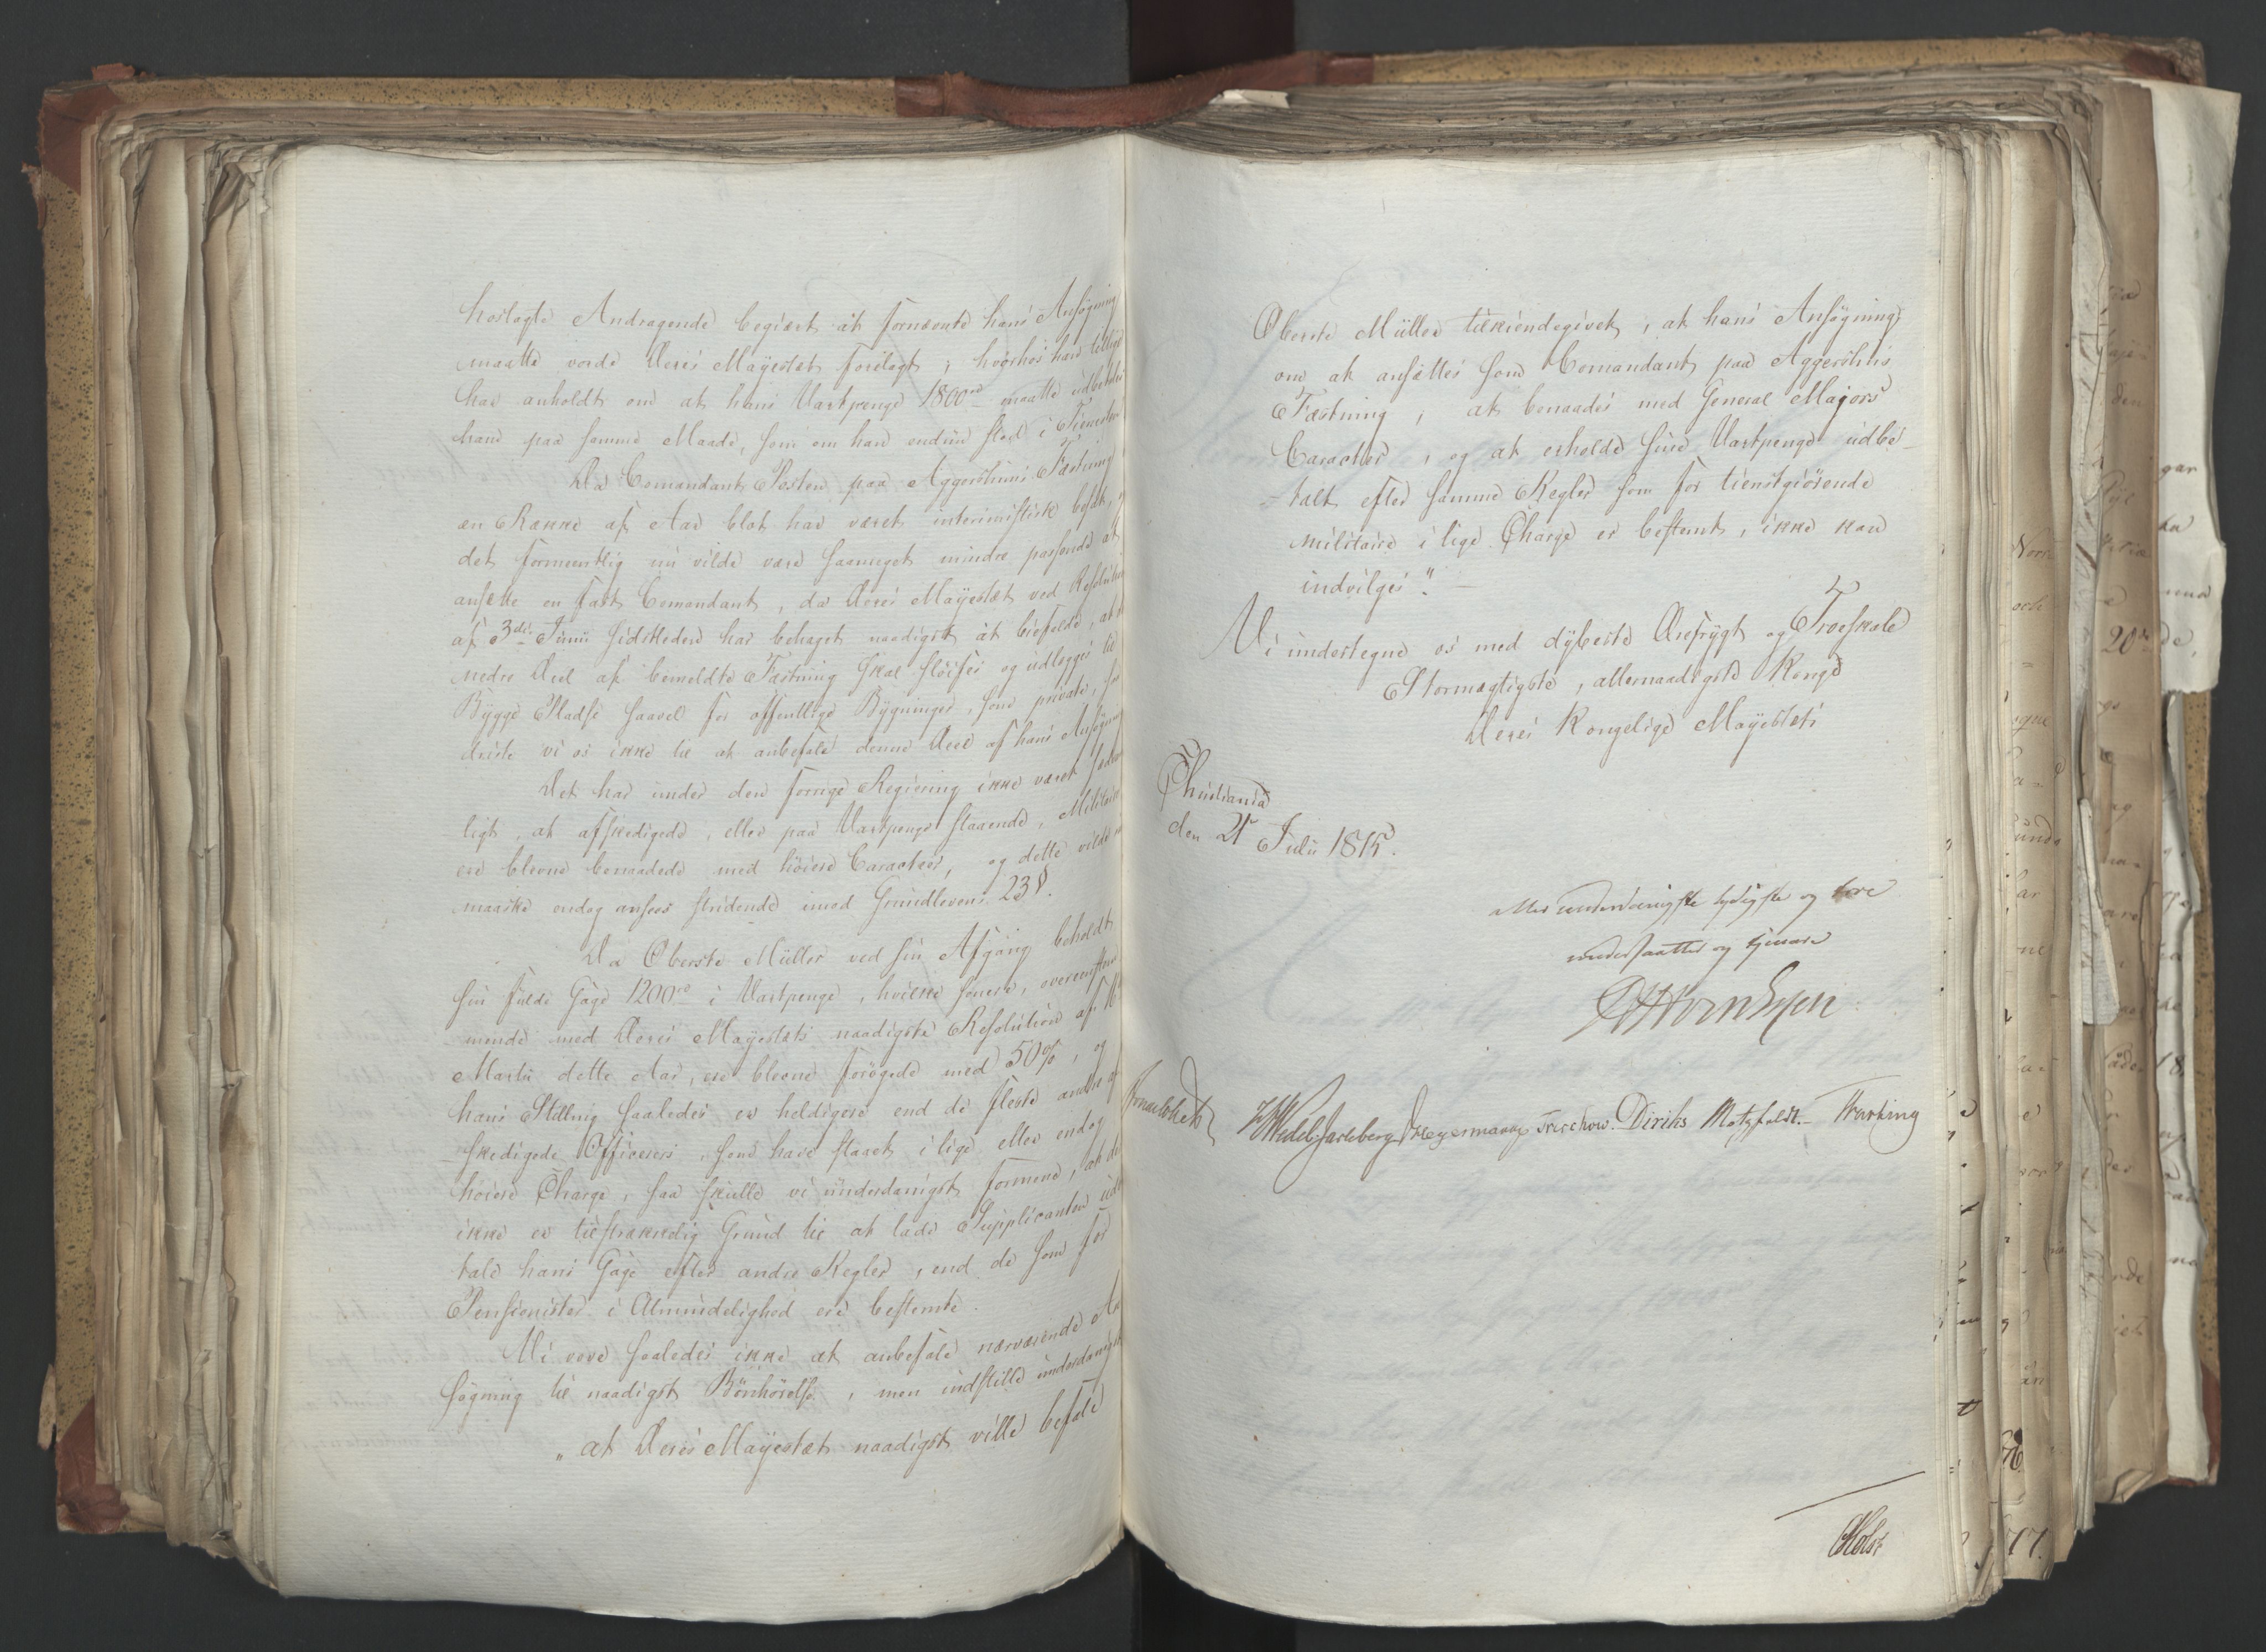 hoslagte Andragende begiært at fornævnte hans Ansøgning
maatte vorde Deres Mayestæt forelagt, hvorhos han tillige
har anholdt om at hans Vartpenge 1800rd maatte udbetales
ham paa samme Maade, som om han endnu stod i Tienesten
Da Comandant Posten paa Aggershuus Fæstning
en Række af Aar blot har været interimistisk besat,
det formeentlig nu vilde være saameget mindre passende at
ansætte en fast Comandant, da Deres Mayestæt ved Resolution
af 3die Junii sidstleden har behaget naadigst at befale, at
nedre Deel af bemeldte Fæstning skal sløifes og udlægges til
Bygge Pladse saavel for offentlige Bygninger, som private, saa
driste vi os ikke til at anbefale denne Deel af hans Ansøgning
Det har under den forrige Regiering ikke været sædvan
ligt, at afskedigede, eller paa Vartpenge staaende, Militaire
ere blevne benaadede med høiere Caracteer, og dette vilde
maaskee endog ansees stridende imod Grundlovens 23 §.
Da Oberste Müller ved sin Afgang beholdt
sin fulde Gage 1200rd i Vartpenge, hvilke senere, overeenstem
mende med Deres Mayestæts naadigste Resolution af 16
Martii dette Aar, ere blevne forøgede med 50%, og
hans Stilling saaledes er heldigere end de fleste andre af
skedigede Officerers, som have staaet i lige eller endog
høiere Charge, saa skulle vi underdanigst formene, at der
ikke er tilstrækkelig Grund til at lade Supplicanten udbe
tale hans Gage efter andre Regler, end de som for
Pensionister i Almindelighed ere bestemte.
Vi vove saaledes ikke at anbefale nærværende An
søgning til naadigst Bönhörelse, men indstille underdanigst
"at Deres Mayestæt naadigst ville befale
Oberste Müller tilkiendegivet, at hans Ansøgning,
om at ansættes som Comandant paa Aggershuus
Fæstning, at benaades med General Majors
Caracteer, og at erholde sine Vartpenge udbe-
-talt efter samme Regler som for tienstgiörende
Militaire i lige Charge er bestemt, ikke kan
indvilges". –
Vi undertegne os med dybeste Ærefrygt og Troeskab
Stormægtigste, allernaadigste Konge
Deres Kongelige Mayestæts
Christiania
den 21 Julii 1815.
allerunderdanigste lydigste og troe
undersaatter og tjenere
Fornæbnet
HWedelJarlsberg Hegermann Treschow. Diriks Motzfeldt.
Holst